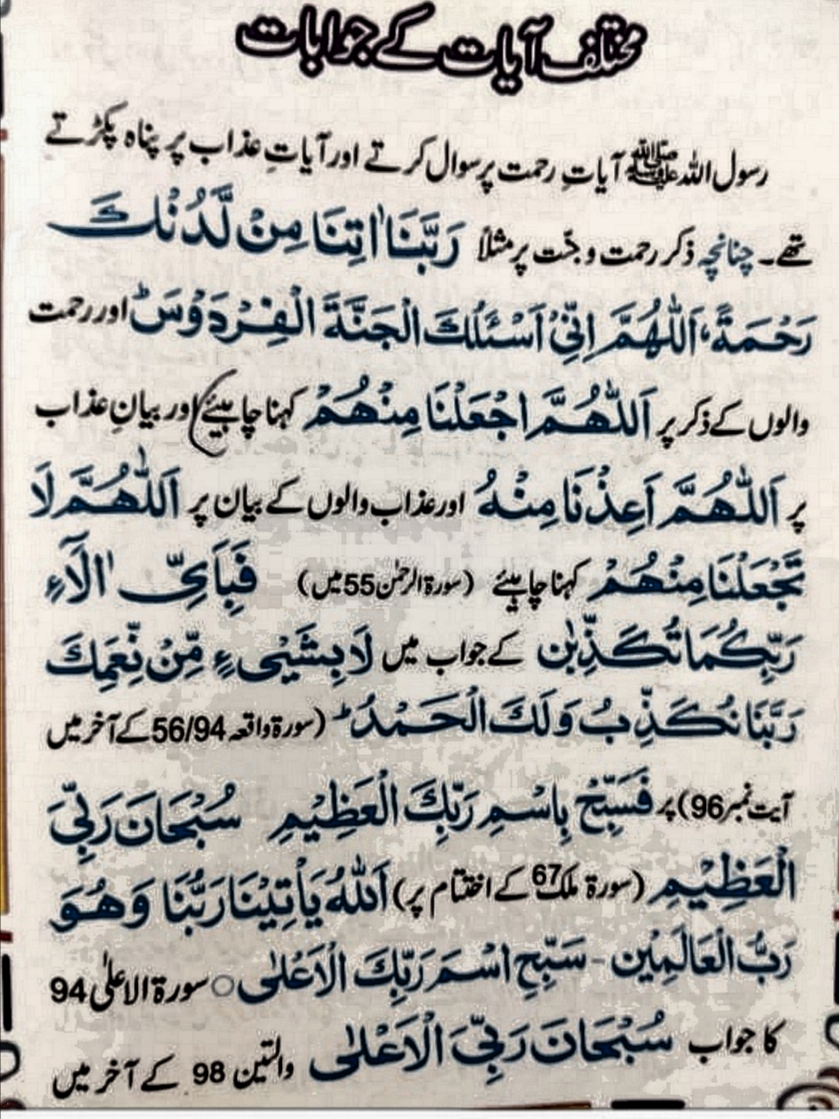 مختلف آیات کے جوابات
رسول اللہ ﷺ آیاتِ رحمت پر سوال کرتے اور آیاتِ عذاب پر پناہ پکڑتے
تھے۔ چنانچہ ذکر رحمت و جنّت پر مثلاً رَبَّنَا اٰتِنَا مِنْ لَّدُنْكَ
رَحْمَةً، اَللّٰهُمَّ اِنِّیْ اَسْئَلُكَ الْجَنَّةَ الْفِرْدَوْسَ ؕ اور رحمت
والوں کے ذکر پر اَللّٰهُمَّ اجْعَلْنَا مِنْهُمْ کہنا چاہیئے) اور بیانِ عذاب
پر اَللّٰهُمَّ اَعِذْنَا مِنْهُ اور عذاب والوں کے بیان پر اَللّٰهُمَّ لَا
تَجْعَلْنَا مِنْهُمْ کہنا چاہیئے (سورۃ الرحمٰن 55 میں) فَبِاَیِّ اٰلَآءِ
رَبِّكُمَا تُكَذِّبٰنِ کے جواب میں لَا بِشَیْیءٍ مِّنْ نِّعَمِكَ
رَبَّنَا نُكَذِّبُ وَلَكَ الْحَمْدُ ؕ (سورۃ واقعہ 56/94 کے آخر میں
آیت نمبر 96) پر فَسَبِّحْ بِاسْمِ رَبِّكَ الْعَظِیْمِ سُبْحَانَ رَبِّیَ
الْعَظِیْمِ (سورۃ ملک 67 کے اختتام پر) اَللّٰهُ یَاْتِیْنَا رَبُّنَا وَهُوَ
رَبُّ الْعَالَمِیْن - سَبِّحِ اسْمَ رَبِّكَ الْاَعْلٰی ○ سورۃ الاعلیٰ 94
کا جواب سُبْحَانَ رَبِّیَ الْاَعْلٰی والتین 98 کے آخر میں